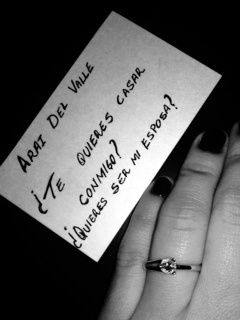 ARAI DEL VALLE
¿TE QUIERES CASAR
CONMIGO?
¿QUIERES SER MI ESPOSA?